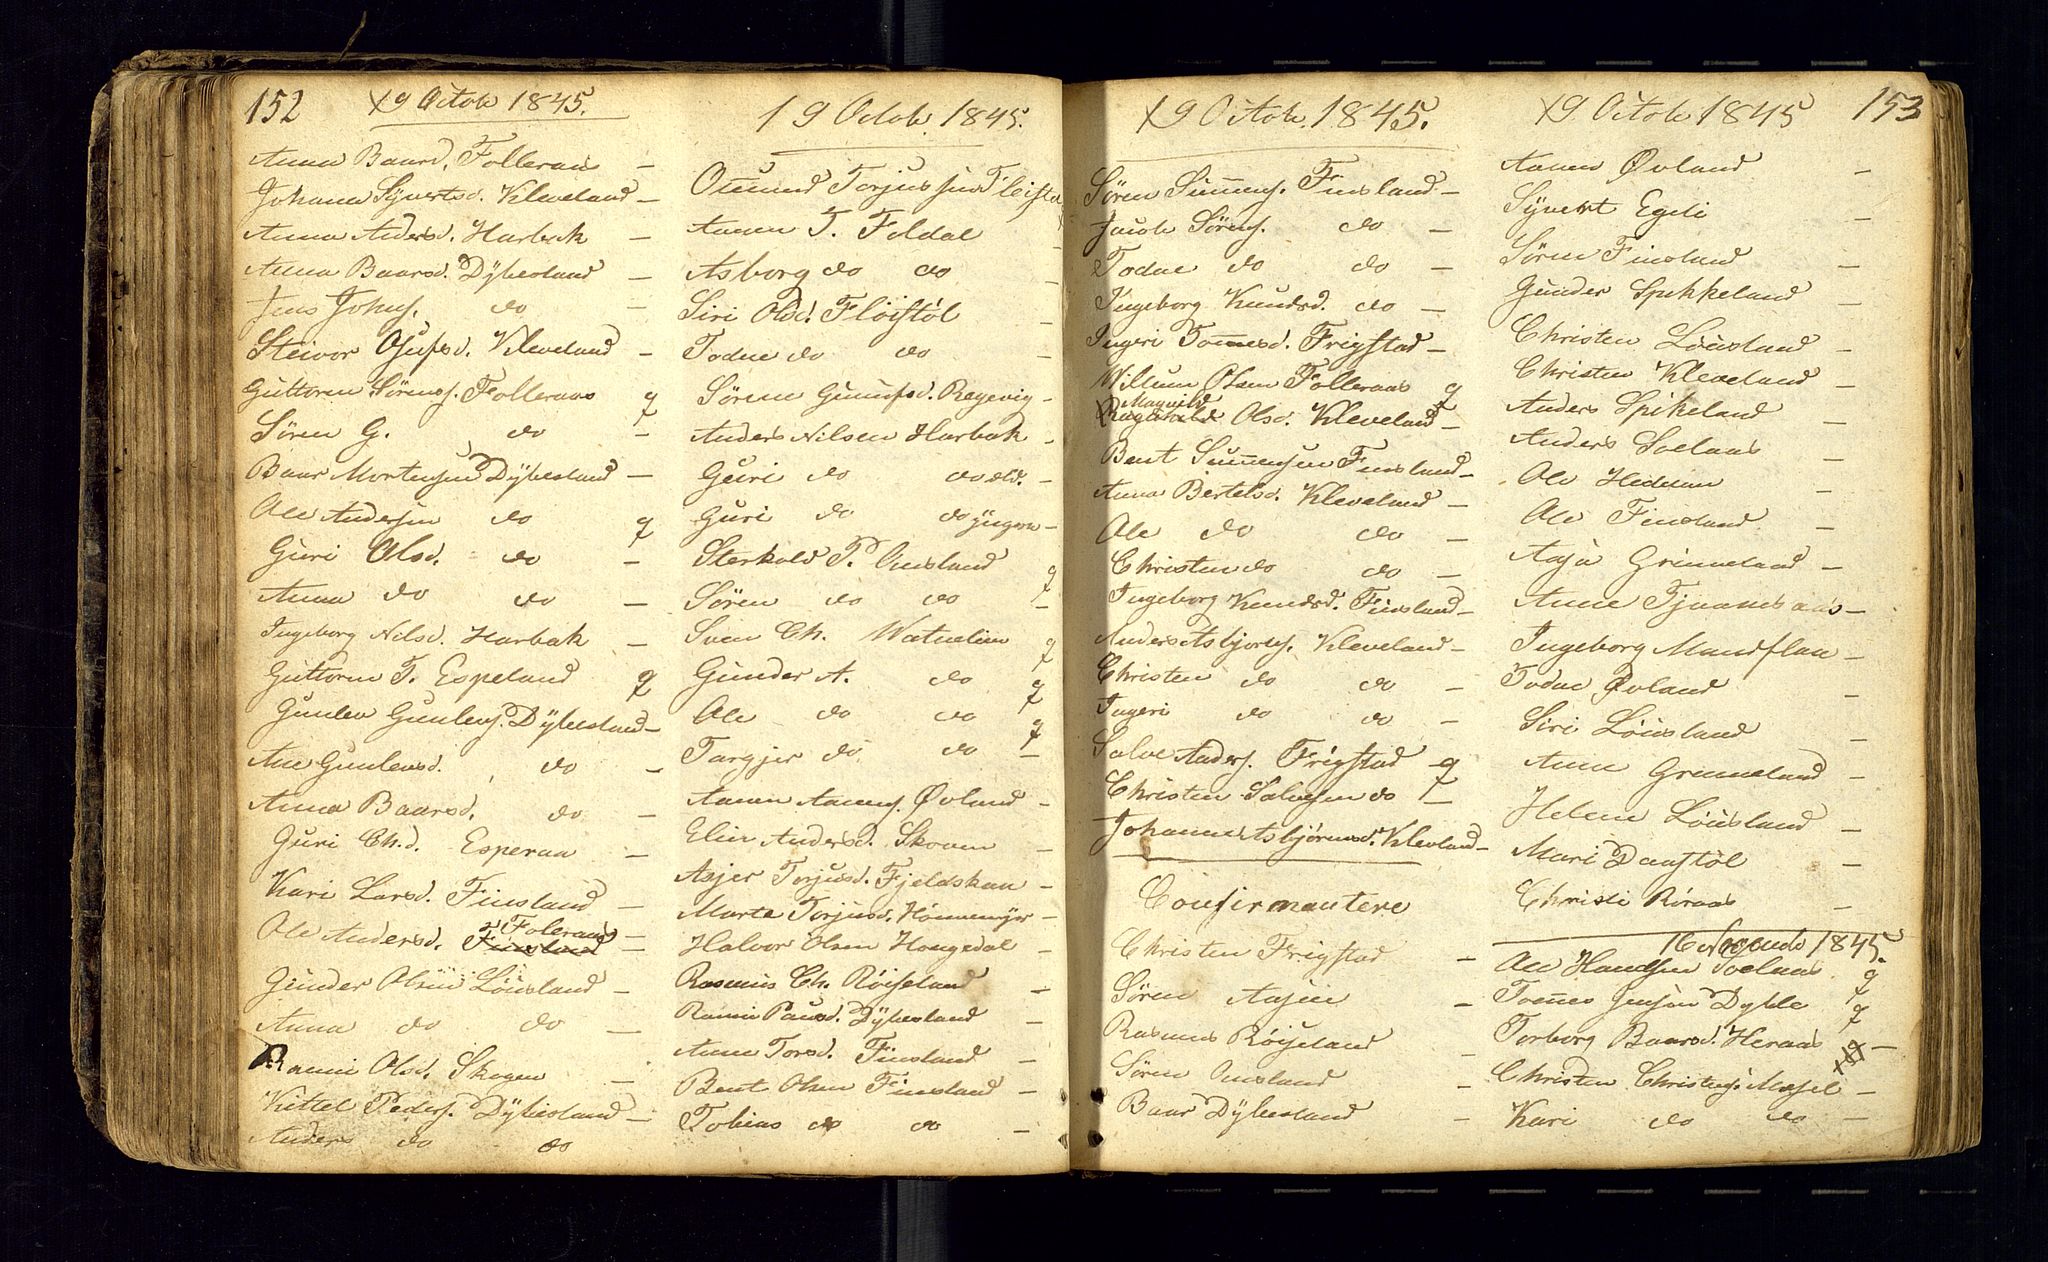 152
19 Octob 1845.
Anna Baard. Folleraas –
Johana Syvertsd. Kleveland –
Anna Andersd. Harbak –
Anna Baarsd. Dybesland –
Jens Johns. do –
Steivor Osufsd. Kleveland –
Guttorm Sørens. Folleraas q
Søren G. do –
Baar Mortensen Dybesland –
Ole Andersen do q
Guri Olsd. do –
Anna do do –
Ingeborg Nilsd. Harbak –
Guttorm T. Espeland q
Gunlev Gunlevs. Dybesland –
Ane Gunlevsd. do –
Anna Baarsd. do –
Guri Ch.d. Esperaa –
Kari Larsd. Finsland –
Ole Andersd. Finsland Foleraas –
Gunder Olsen Løusland –
Anna do do –
Ranni Olsd. Skogen –
Kittel Peders. Dybesland –
Anders do do
19 Octob. 1845.
Osmund Torjussen Fløistø
Aanen T. Foldal –
Asborg do do –
Siri Olsd. Fløistøl –
Todne do do –
Sørene Gunufsd. Røgevig –
Anders Nilsen Harbak –
Guri do do æld. –
Guri do do yngre –
Sterkold P. Omsland q
Søren do do –
Sven Ch. Watnelien q
Gunder A. do q
Ole do do q
Targjer do do –
Aanen Aanens. Øvland –
Elin Andersd. Skoven –
Asjer Torjusd. Fjeldskaa –
Marte Torjusd. Hønnemyr –
Halvor Olsen Haugedal –
Rasmus Ch. Røiseland –
Ranni Paulsd. Dybesland –
Anne Torsd. Finsland –
Bent Olsen Finsland –
Tobias do do –
19 Octob. 1845.
Søren Sunnens. Finsland –
Jacob Sørens. do –
Todne do do –
Ingeborg Knudsd. do –
Ingeri Tommesd. Frigstad –
Willum Olsen Folleraas q
Magnild
Ragnhild Olsd. Kleveland –
Bent Sunnensen Finsland –
Anna Bertelsd. Kleveland –
Ole do do –
Christen do do –
Ingeborg Knudsd. Finsland –
Anders Asbjørns. Kleveland –
Christen do do –
Ingeri do do –
Salve Anders. Frigstad q
Christen Salvesen do –
Johanne Asbjørnsd. Klevland –
Confirmantere
Christen Frigstad –
Søren Aasen –
Rasmus Røiseland –
Søren Omsland –
Baar Dybesland –
19 Octob 1845 153
Aanen Øvland –
Syvert Egeli –
Søren Finsland –
Gunder Spikkeland –
Christen Løusland –
Christen Kleveland –
Anders Spikeland –
Anders Solaas –
Ole Heddan –
Ole Finsland –
Aasa Grinneland –
Anne Tjuamsaas –
Ingeborg Mandflaa –
Todne Øvland –
Siri Løusland –
Anne Grinneland –
Helene Løusland –
Mari Daastøl –
Christi Røraas –
16 Novemb 1845.
Ole Handsen Solaas q
Tommes Jensen Dyble q
Torborg Baarsd. Heraas –
Christen Christens. Mosel –
Kari do do –